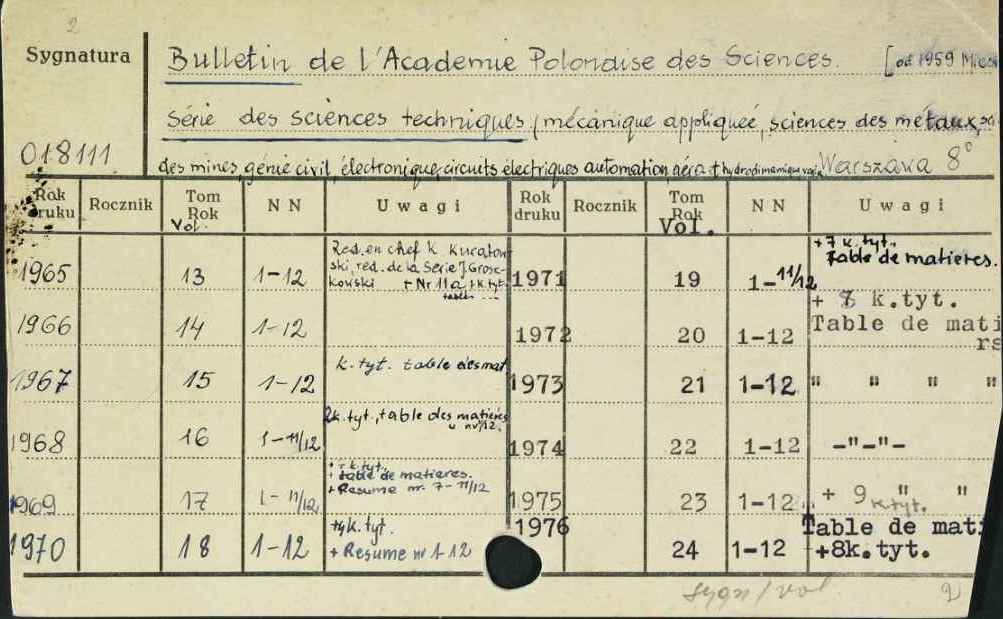 2
Sygnatura
Bulletin de l'Academie Polonaise des Sciences. [od 1959
Série des sciences techniques (mécanique appliquée, sciences des métaux,
018111
des mines, génie civil, électronique, circuits électriques automation aéro et hydrodinamique Warszawa 8°
Rok druku Rocznik Tom Rok Vol. NN Uwagi Rok druku Rocznik Tom Rok Vol. NN Uwagi
1965 13 1-12 Red. en chef K. Kuratow-
ski, red. de la Serie J. Grosz-
kowski + Nr 11a + k. tyt.
table
1971 19 1-11/12 + 7 k. tyt.
Table de matieres.
1966 14 1-12
1972 20 1-12 + 8 k.tyt.
Table de mati
rs
1967 15 1-12 k. tyt. table des mat
1973 21 1-12 " " " "
1968 16 1-11/12 2k. tyt., table des matieres
w nr/12.
1974 22 1-12 -"-"-
1969 17 1-11/12 k. tyt.
+ table de matieres.
+ Resume nr. 7-11/12
1975 23 1-12 + 9 k.tyt. " "
1970 18 1-12 k. tyt.
+ Resume nr 1-12
1976 24 1-12 Table de mati
+8k. tyt.
sygn/vol